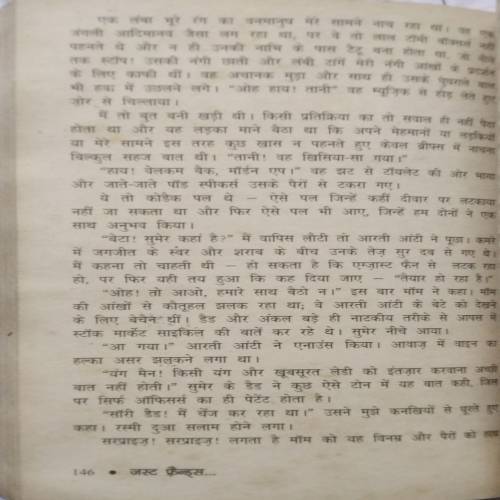 एक लंबा भूरे रंग का वनमानुष मेरे सामने नाच रहा था। वह एक
जंगली आदिमानव जैसा लग रहा था, पर वे तो लाल टॉमी बॉक्सर्स नहीं
पहनते थे और न ही उनकी नाभि के पास टैटू बना होता था, जो नीचे
तक स्टॉप! उसकी नंगी छाती और लंबी टांगें मेरी नंगी आंखों के प्रदर्शन
के लिए काफी थीं। वह अचानक मुड़ा और साथ ही उसके घुंघराले बाल
भी हवा में उछलने लगे। “ओह हाय! तानी” वह म्यूज़िक से होड़ लेते हुए
ज़ोर से चिल्लाया।
मैं तो बुत बनी खड़ी थी। किसी प्रतिक्रिया का तो सवाल ही नहीं पैदा
होता था और यह लड़का माने बैठा था कि अपने मेहमानों या लड़कियों
या मेरे सामने इस तरह कुछ खास न पहनते हुए केवल ब्रीफ्स में नाचना
बिल्कुल सहज बात थी। “तानी! वह खिसिया-सा गया।”
“हाय! वेलकम बैक, मॉर्डन एप।” वह झट से टॉयलेट की ओर भागा
और जाते-जाते पॉड स्पीकर्स उसके पैरों से टकरा गए।
ये तो कोडेक पल थे – ऐसे पल जिन्हें कहीं दीवार पर लटकाया
नहीं जा सकता था और फिर ऐसे पल भी आए, जिन्हें हम दोनों ने एक
साथ अनुभव किया।
“बेटा! सुमेर कहां है?” मैं वापिस लौटी तो आरती आंटी ने पूछा। कमरे
में जगजीत के स्वर और शराब के बीच उनके तेज़ सुर दब से गए थे।
मैं कहना तो चाहती थी – हो सकता है कि एग्ज़ास्ट फैन से लटक रहा
हो, पर फिर यही तय हुआ कि कह दिया जाए – “तैयार हो रहा है।”
“ओह! तो आओ, हमारे साथ बैठो न।” इस बार मॉम ने कहा। मॉम
की आंखों से कौतूहल झलक रहा था; वे आरती आंटी के बेटे को देखने
के लिए बेचैन थीं। डैड और अंकल बड़े ही नाटकीय तरीके से आपस में
स्टॉक मार्केट साइकिल की बातें कर रहे थे। सुमेर नीचे आया।
“आ गया।” आरती आंटी ने एनाउंस किया। आवाज़ में वाइन का
हल्का असर झलकने लगा था।
“यंग मैन! किसी यंग और खूबसूरत लेडी को इंतज़ार करवाना अच्छी
बात नहीं होती।” सुमेर के डैड ने कुछ ऐसे टोन में यह बात कही, जिस
पर सिर्फ ऑफिसर्स का ही पेटेंट होता है।
“सॉरी डैड! मैं चेंज कर रहा था।” उसने मुझे कनखियों से घूरते हुए
कहा। रस्मी दुआ सलाम होने लगा।
सरप्राइज़! सरप्राइज़! लगता है मॉम को यह विनम्र और पैरों को हाथ
146 • जस्ट फ्रैन्ड्स...